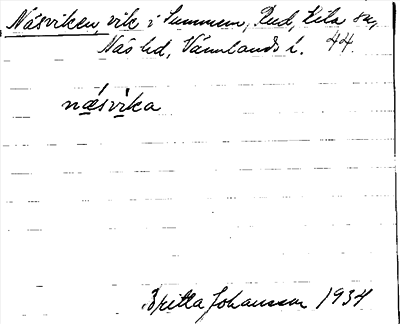 Näsviken, vik i Summeln, Rud, Kila sn,
Näs hd, Värmlands l. 44.
næsvika
Britta Johansson 1934